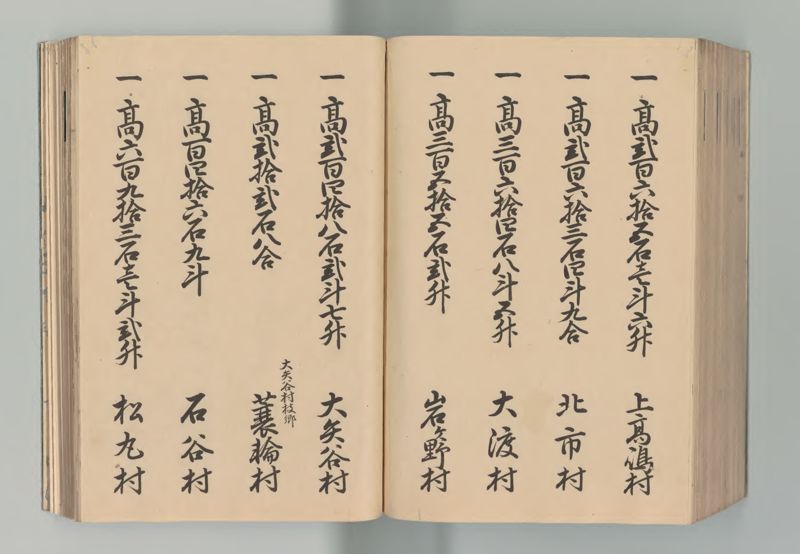 一 高弐百六拾五石壱斗六升 上高嶋村
一 高弐百六拾三石四斗九合 北市村
一 高三百六拾四石八斗五升 大渡村
一 高三百五拾五石弐升 岩ヶ野村
一 高弐百四拾八石弐斗七升 大矢谷村
大矢谷村枝郷
一 高弐拾弐石八合 蓑輪村
一 高百四拾六石九斗 石谷村
一 高六百九拾三石壱斗弐升 松丸村